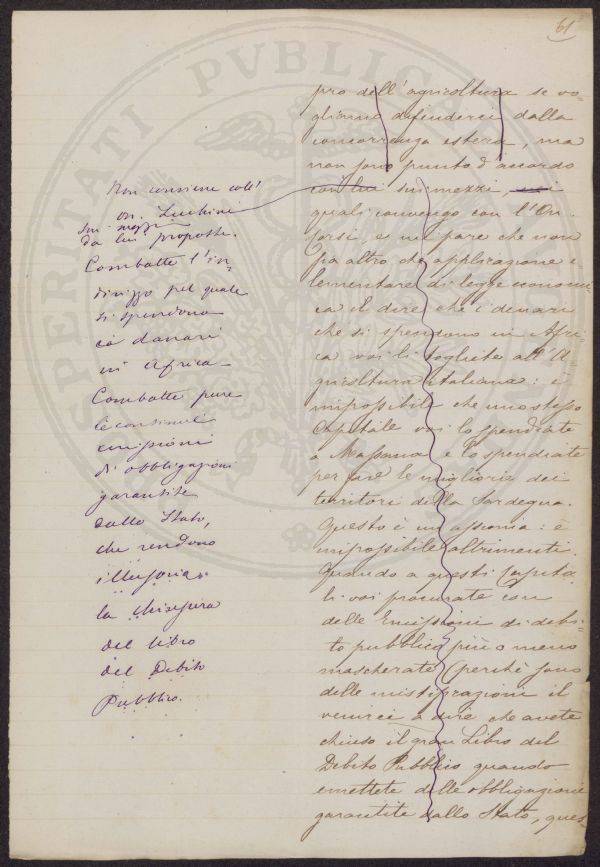 61
pro dell'agricoltura se vo=
gliamo difenderci dalla
concorrenza estera, ma
non sono punto d'accordo
con lui sui mezzi
quali convengo con l'On.
forsi, e mi pare che non
sia altro che applicazione e
lementare di legge economi
ca il dire che i denari
che si spendono in Afri=
ca voi li togliete all'A=
gricoltura italiana: è
impossibile che uno stesso
Capitale voi lo spendiate
a Massaua e lo spendiate
per fare le migliorie dei
territori della Sardegna.
Questo è un assioma: è
impossibile altrimenti.
Quando a questi Capita
li voi procurate con
delle Emissioni di debi=
to pubblico più o meno
mascherate (perchè sono
delle mistificazioni il
venirci a dire che avete
chiuso il gran Libro del
Debito Pubblico quando
emettete delle obbligazioni
garantite dallo Stato, ques
Non conviene coll'
on. Luchini
sui mezzi
da lui proposti.
Combatte l'in=
dirizzo pel quale
si spendono
i danari
in Africa
Combatte pure
le continue
emissioni
di obbligazioni
garantite
dallo Stato,
che rendono
illusoria
la chiusura
del libro
del Debito
Pubblico.
PROSPERITATI PVBLICAE